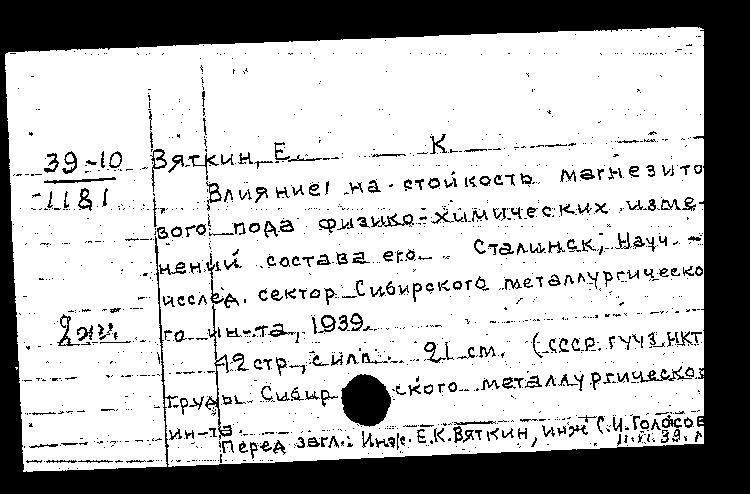 39-10 Вяткин, Е. К
1181 Влияние на стойкость магнезито
вого пода физико-химических изме-
нений состава его. Сталинск, Науч.-
исслед. сектор Сибирского металлургическо
2 экз. го ин-та, 1939.
42 стр., с илл. 21 см. (СССР. ГУУЗ НКТ
Труды Сибир ского металлургическог
ин-та.
Перед загл.: Инж. Е.К. Вяткин, инж С.И. Голосов